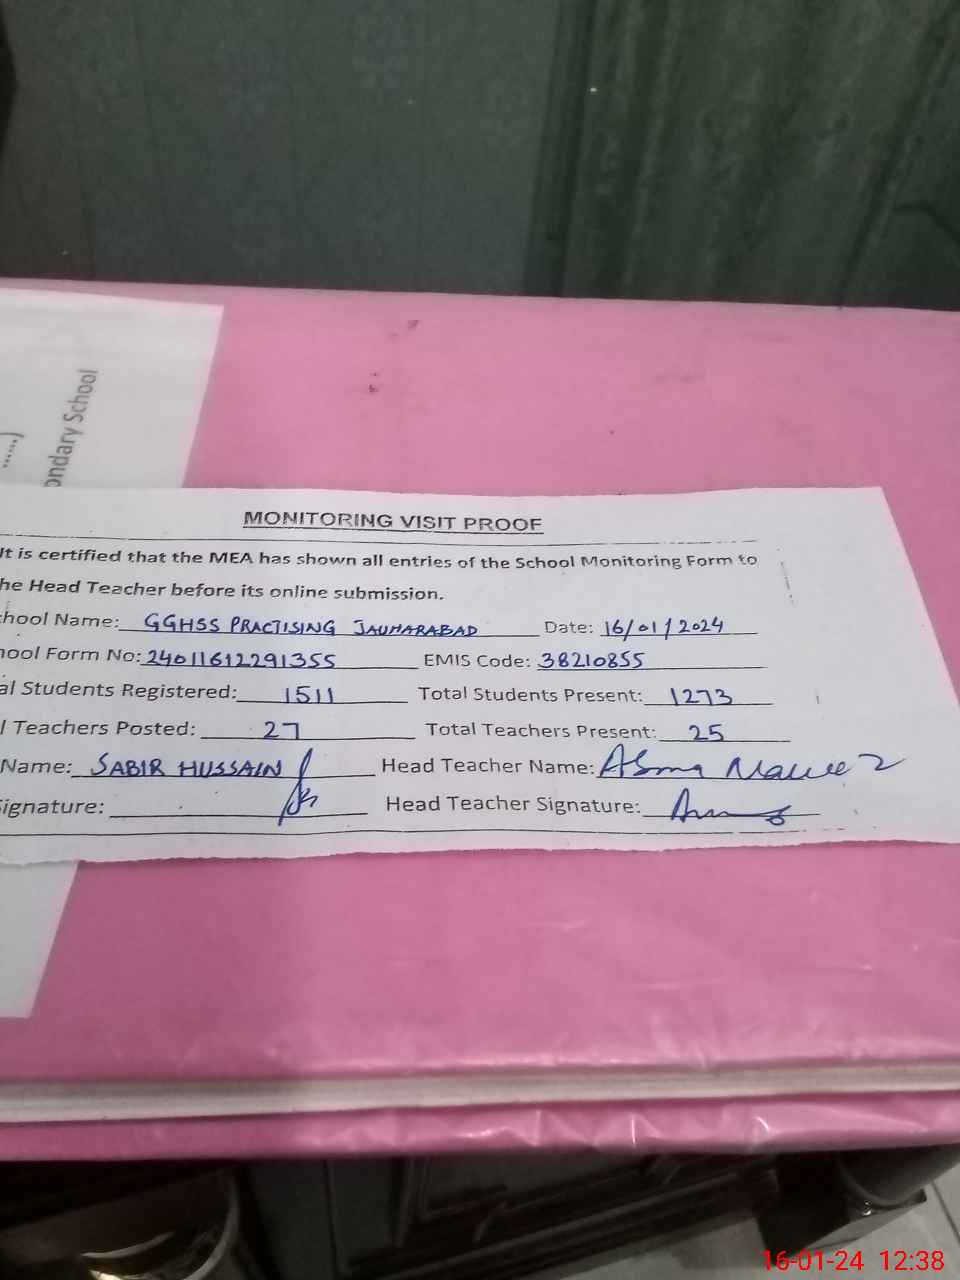 ondary School
......)
MONITORING VISIT PROOF
It is certified that the MEA has shown all entries of the School Monitoring Form to
he Head Teacher before its online submission.
chool Name: GGHSS PRACTISING JAUHARABAD Date: 16/01/2024
hool Form No: 24011612291355 EMIS Code: 38210855
al Students Registered: 1511 Total Students Present: 1273
l Teachers Posted: 27 Total Teachers Present: 25
Name: SABIR HUSSAIN Head Teacher Name: Asma
ignature: Head Teacher Signature:
16-01-24 12:38